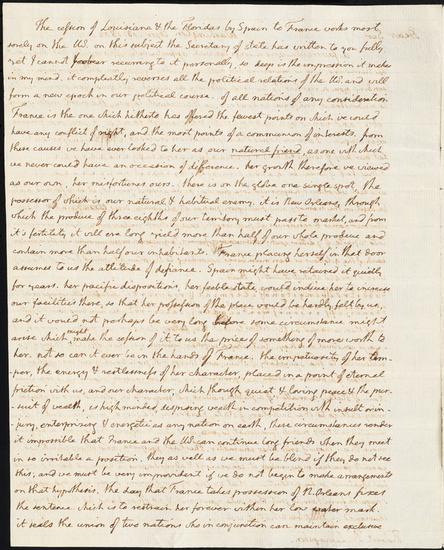 The cession of Louisiana & the Floridas by Spain to France works most
sorely on the US. on this subject the Secretary of state has written to you fully.
yet I cannot forbear recurring to it personally, so deep is the impression it makes
in my mind. it compleatly reverses all the political relations of the US. and will
form a new epoch in our political course. of all nations of any consideration
France is the one which hitherto has offered the fewest points on which we could
have any conflict of right, and the most points of a communion of interests. from
these causes we have ever looked to her as our natural friend, as one with which
we never could have an occasion of difference. her growth therefore we viewed
as our own, her misfortunes ours. there is on the globe one single spot, the
possessor of which is our natural & habitual enemy. it is New Orleans, through
which the produce of three eighths of our territory must pass to market, and from
it's fertility it will ere long yield more than half of our whole produce and
contain more than half our inhabitants. France placing herself in that door
assumes to us the attitude of defiance. Spain might have retained it quietly
for years. her pacific dispositions, her feeble state, would induce her to increase
our facilities there, so that her possession of the place would be hardly felt by us,
and it would not perhaps be very long before some circumstance might
arise which might make the cession of it to us the price of something of more worth to
her. not so can it ever be in the hands of France. the impetuosity of her tem-
-per, the energy & restlessness of her character, placed in a point of eternal
friction with us, and our character, which though quiet, & loving peace & the pur-
-suit of wealth, is high minded, despising wealth in competition with insult or in-
-jury, enterprizing & energetic as any nation on earth, these circumstances render
it impossible that France and the US. can continue long friends when they meet
in so irritable a position. they as well as we must be blind if they do not see
this; and we must be very improvident if we do not begin to make arrangements
on that hypothesis. the day that France takes possession of N. Orleans fixes
the sentence which is to restrain her forever within her low water mark.
it seals the union of two nations who in conjunction can maintain exclusive